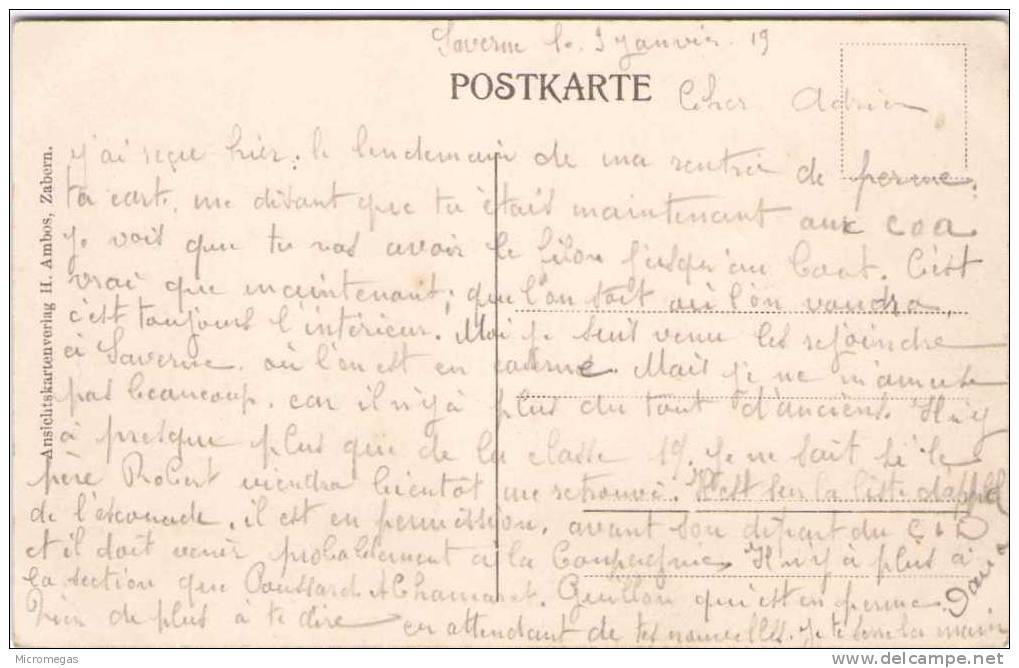 Saverne le 3 Janvier 19
POSTKARTE
Cher Adrien
j'ai reçue hier, le lendemain de ma rentrée de perme,
ta carte, me disant que tu étais maintenant aux COA
je vois que tu vas avoir le filon jusqu'au bout. C'est
vrai que maintenant, que l'on soit où l'on voudra,
c'est toujours l'intérieur. Moi je suit venu les rejoindre
à Saverne, où l'on est en caserne. Mais je ne m'amuse
pas beaucoup, car il n'y à plus du tout d'anciens. Il n'y
à presque plus que de la classe 19. Je ne sait si le
père Robert viendra bientôt me retrouvé. Il est sur la liste d'appel
de l'escouade, il est en permission, avant son départ du C I D
et il doit venir probablement à la Compagnie. Il n'y à plus à
la section que Poussard et Chamaret. Guillon qui est en perme.
Rien de plus à te dire en attendant de tes nouvelles. Je te serre la main
Ansichtskartenverlag H. Ambos, Zabern.
Micromegas
delcampe.net